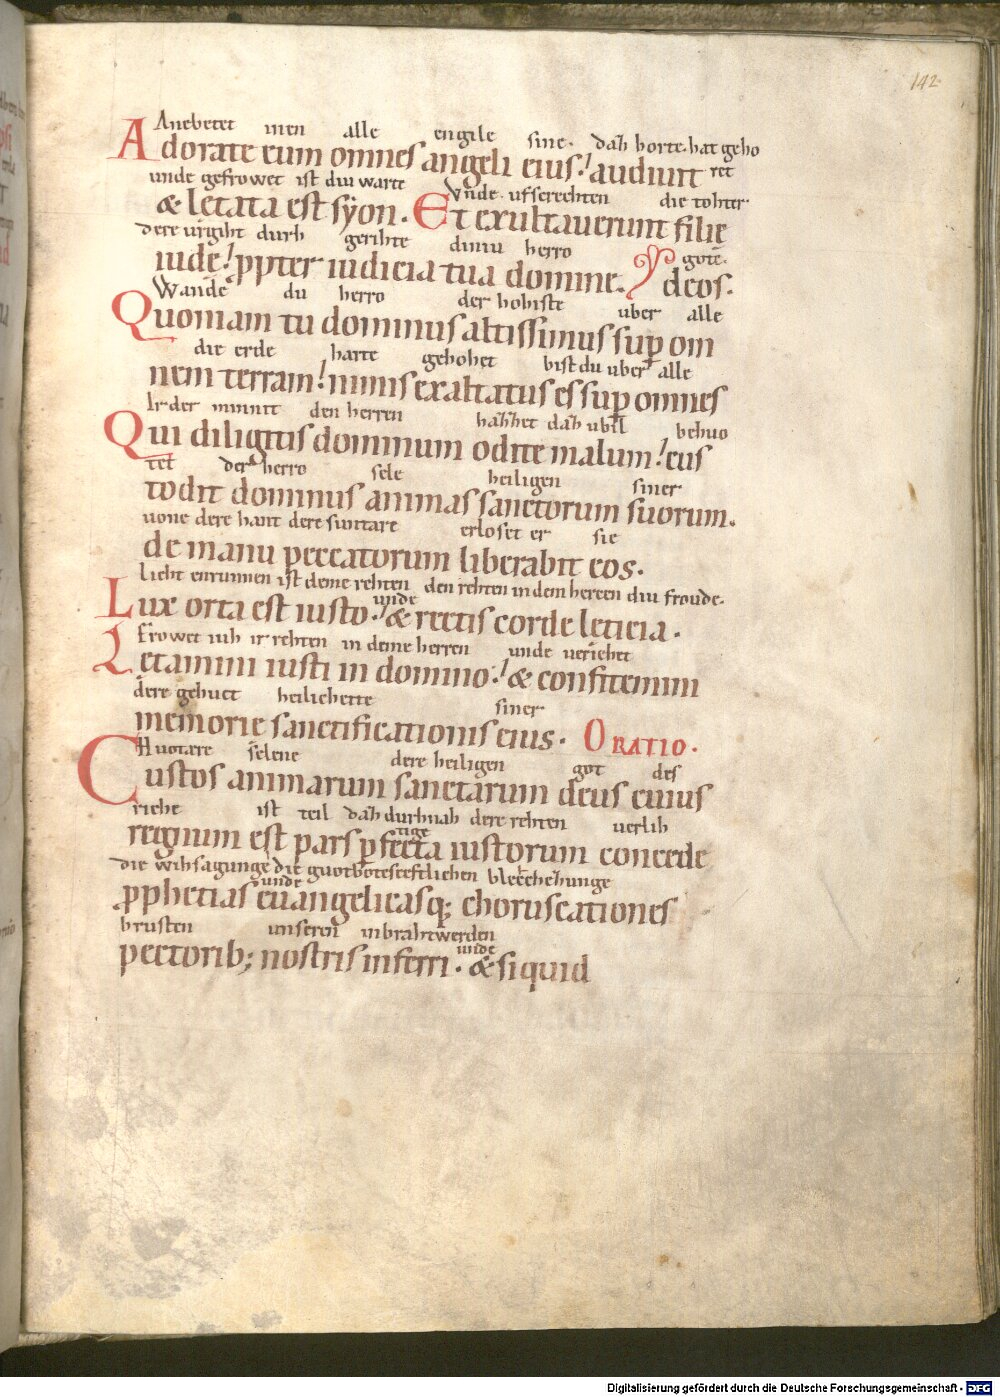 142
Anebetet men alle engile sine. dah horte. hat geho
Adorate eum omnes angeli eius! audiuit ret
unde gefrowet ist diu warte Vnde ufserechten die tohter
& letata est syon. Et exultauerunt filie
dere urgiht durh gerihte diniu herro gote.
iude! ppter iudicia tua domine. deos.
Wande du herro der hohiste uber alle
Quoniam tu dominus altissimus sup om
die erde harte gehohet bist du uber alle
nem terram! nimis exaltatus es sup omnes
Ir der minnit den herren hahhet dah ubil behuo
Qui diligitis dominum odite malum! cus
tet der herro sele heiligen siner
todit dominus animas sanctorum suorum.
uone dere hant dere suntare erloset er sie
de manu peccatorum liberabit eos.
Lieht enrunnen ist deme rehten unde den rehten in dem hercen diu froude.
Lux orta est iusto! & rectis corde leticia.
Frowet iuh ir rehten in deme herren unde ueriehet
Letamini iusti in domino! & confitemini
dere gehuct heilichette siner
memorie sanctificationis eius. ORATIO.
Huotare selene dere heiligen got des
Custos animarum sanctarum deus cuius
riche ist teil dah durhnah tige dere rehten uerlih
regnum est pars pfecta iustorum concede
die wihsagunge unde die guotboteseeftlichen blecchehunge
pphetias euangelicasq; choruscationes
brusten unseren inbraht werden unde
pectorib; nostris inferri. & siquid
Digitalisierung gefördert durch die Deutsche Forschungsgemeinschaft - DFG